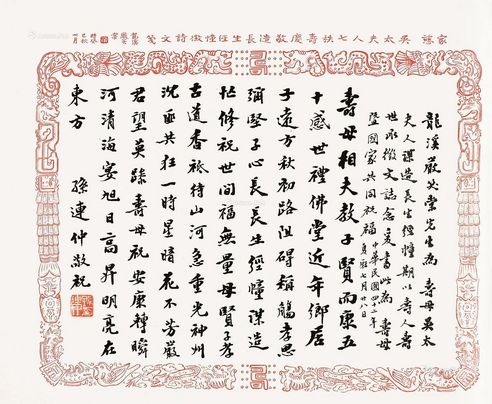 家慈吳太夫人七秩壽慶敬造長生經幢徵詩文箋
龍溪嚴笑棠先生為 壽母吳太
夫人謀造長生經幢期以壽人壽
世承徵文誌念爰書此為 壽母
暨國家共同祝福 中華民國四十二年
七月廿八日
壽母相夫教子賢而康五
十感世禮佛堂近年鄉居
子遠方秋初路阻碍稱觴孝思
彌堅子心長長生經幢謀造
忙修祝世間福無量母賢子孝
古道香祗待山河急重光神州
沈亟共狂一時星暗花不芳嚴
君望英踪壽母祝安康轉瞬
河清海宴旭日高昇明亮在
東方 孫連仲敬祝